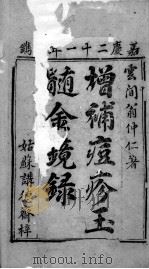 嘉慶二十一年鐫
雲間翁仲仁著
增補痘疹玉
髓金鏡錄
姑蘇
齋梓
www.mtoou.info